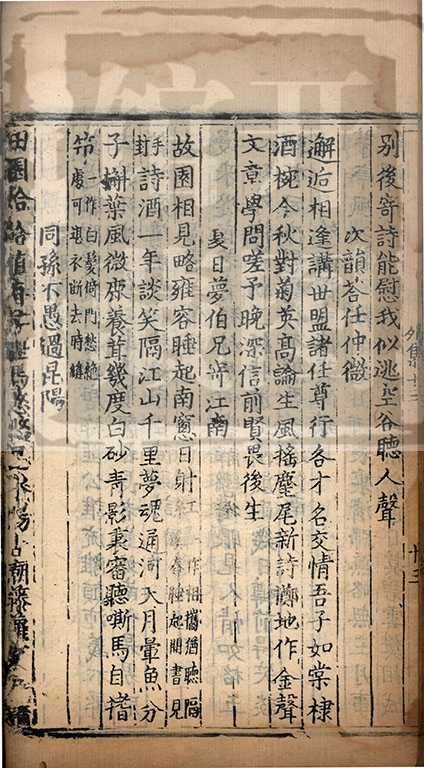 别後寄詩能慰我似逃空谷聽人聲
次韻荅任仲微
邂逅相逢講世盟諸任尊行各才名交情吾子如棠棣
酒椀今秋對菊英髙論生風揺麈尾新詩擲地作金聲
文章學問嗟予晚深信前賢畏後生
夏日夢伯兄寄江南
故園相見略雍容睡起南窻日射
作相攜猶聽隔
舂睡起開書見
手
封
詩酒一年談笑隔江山千里夢魂通河天月暈魚分
子槲葉風微鹿養茸幾度白砂青影裏審聽嘶馬自搘
笻
一作白髪倚門愁絶
處可堪衣斷去時縫
同孫不愚過昆陽
田園恰恰值春馬悠陽古廟藤蘿